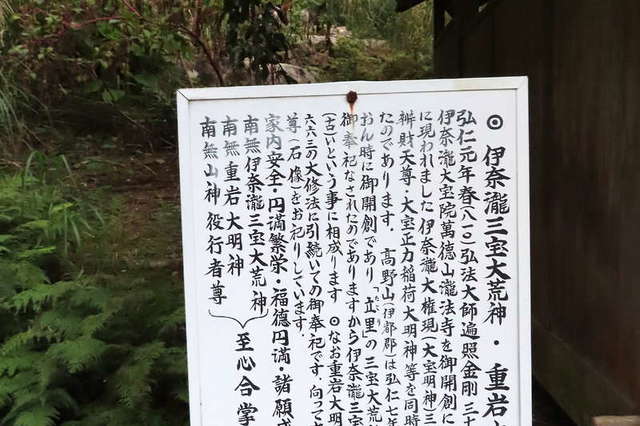 ◎ 伊奈瀧三宝大荒神・重岩
弘仁元年春(八一〇)弘法大師遍照金剛三十
伊奈瀧大宝院萬德山瀧法寺を御開創に
に現われました伊奈瀧大権現(大宝明神)三
辨財天尊・大宝正力稲荷大明神等を同時
たのであります。高野山(伊都郡)は弘仁七年
おん時に御開創であり「立里」の三宝大荒
御奉祀なされたのでありますから伊奈瀧三宝
(古)いという事に相成ります ◎なお重岩大明
六六三の大修法に引続いての御奉祀です。向って
尊(石像)をお祀りしています。
家内安全・円満繁栄・福德円満・諸願成
南無伊奈瀧三宝大荒神
南無重岩大明神
南無山神役行者尊
至心合掌